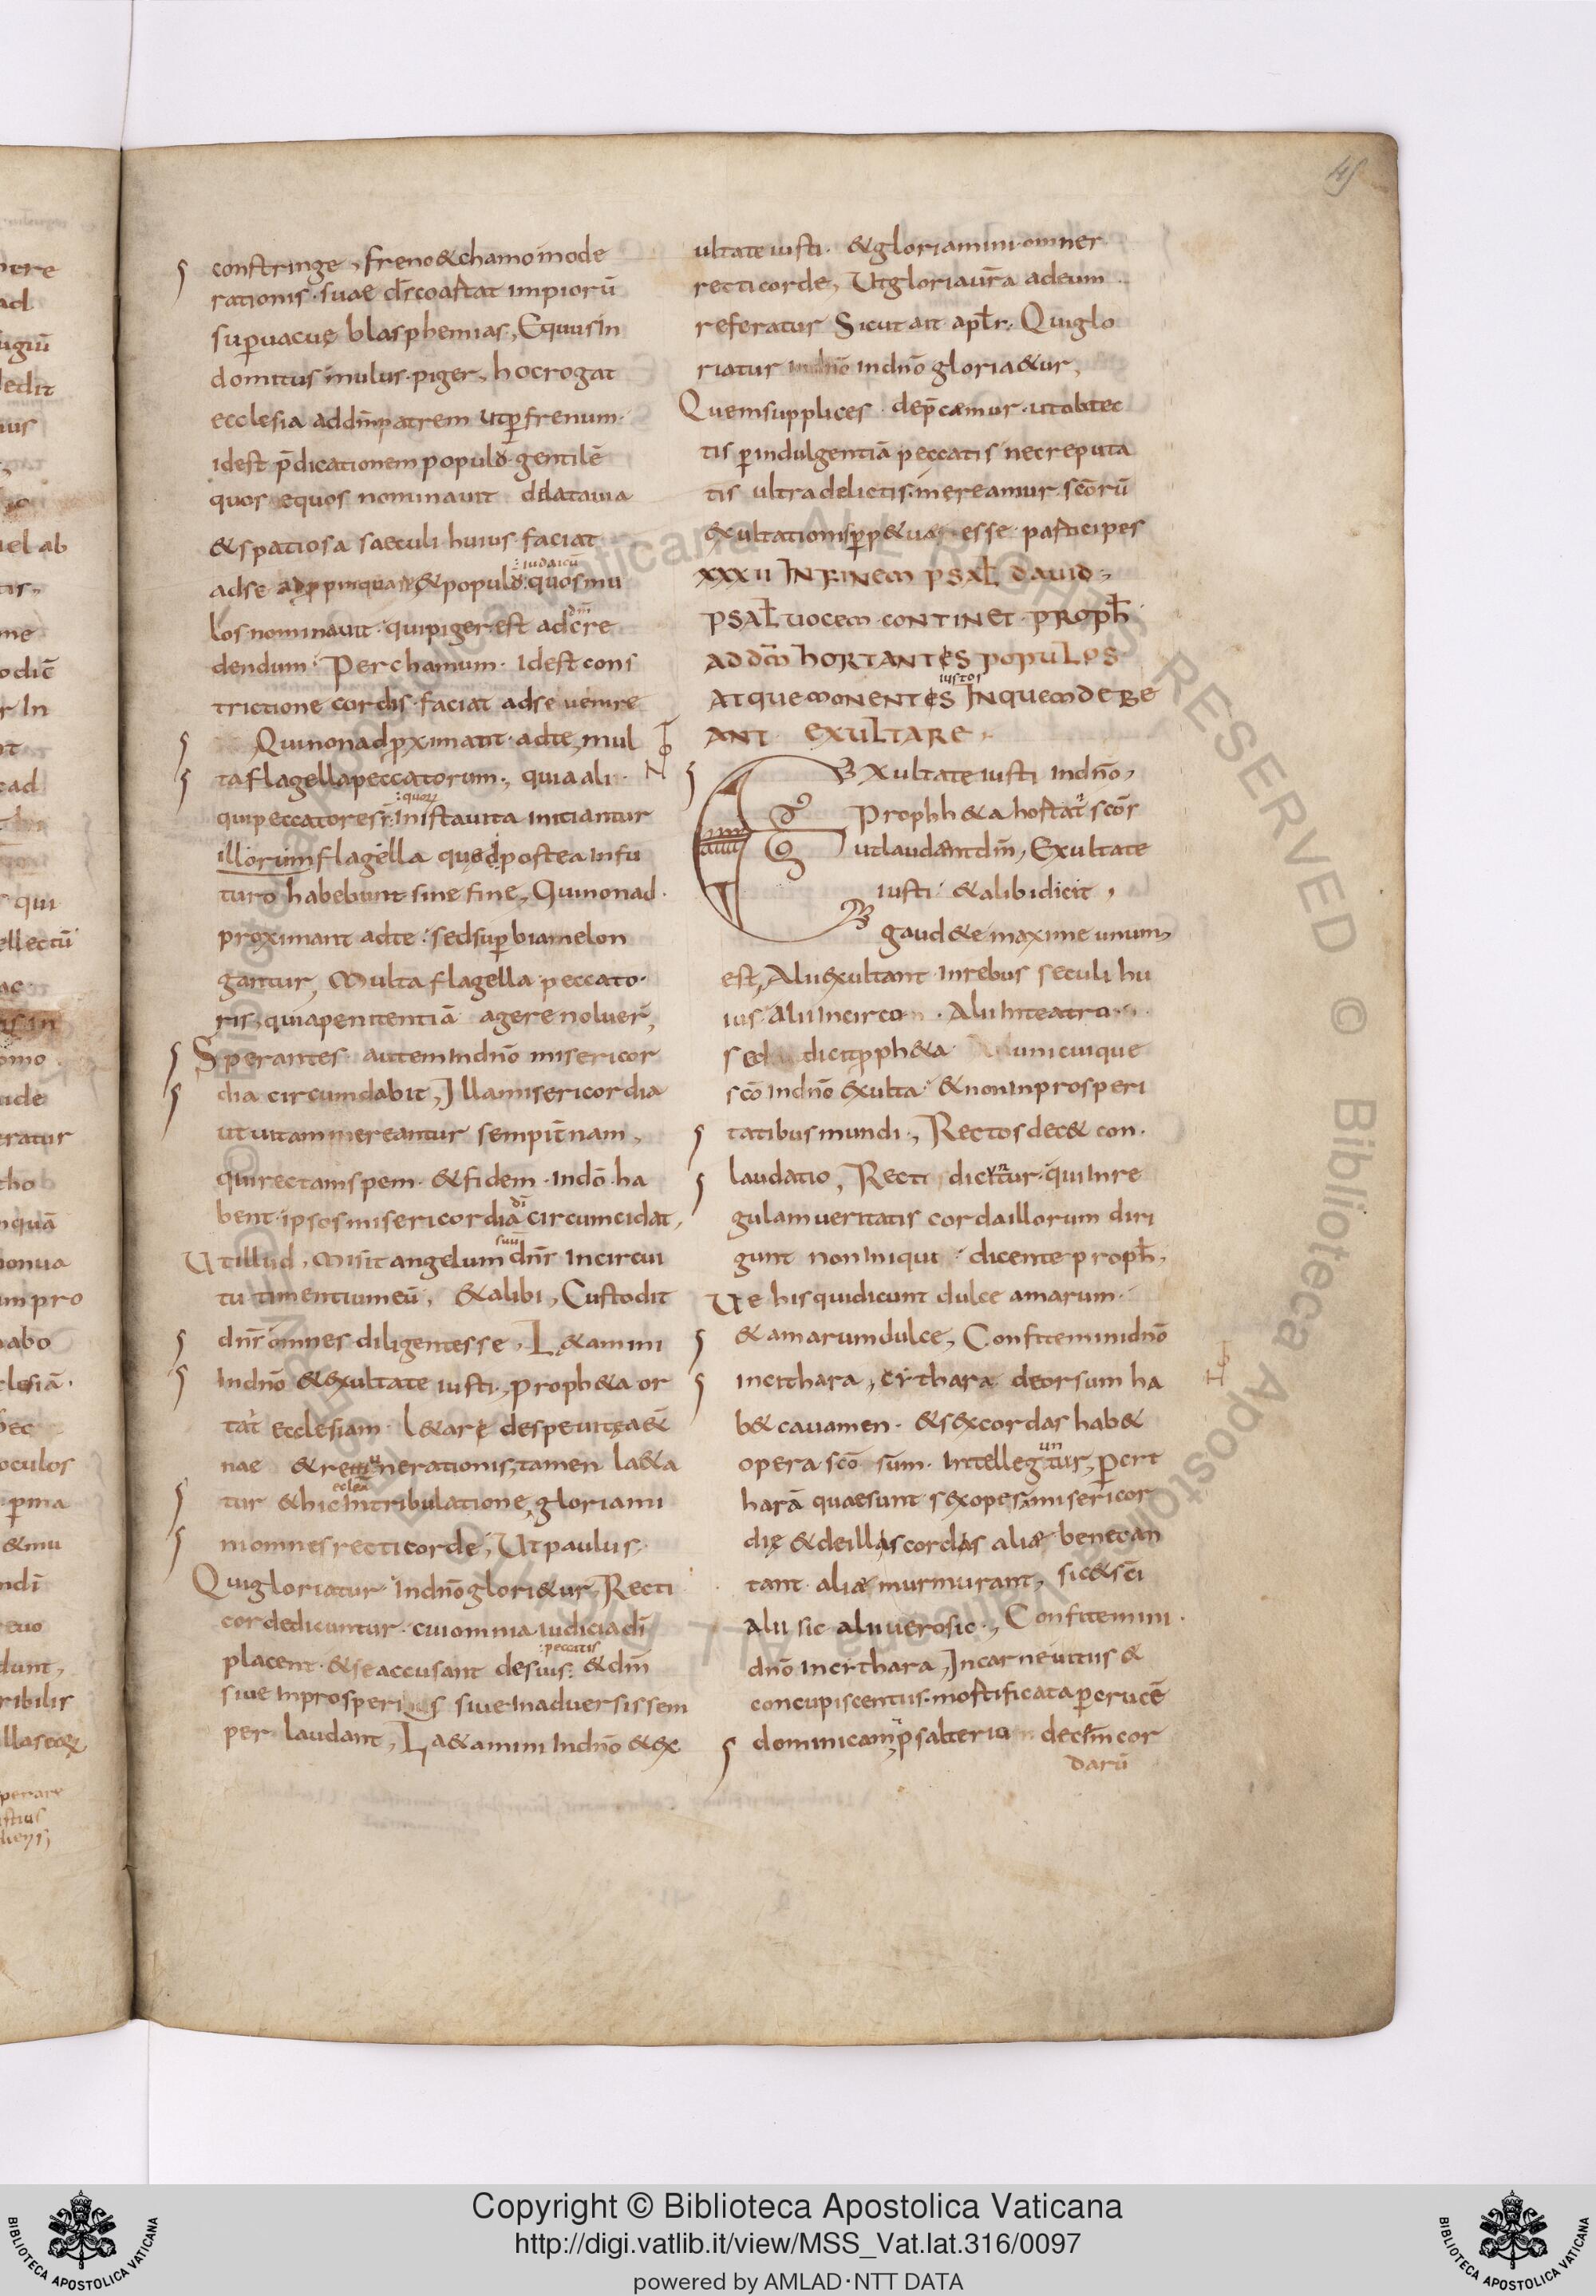 45
constringe, freno&chamo inode
rationis suae d̄s coastat impiorū
sup̱uacuę blasphemias, Equus in
domitus mulus piger, hoc rogat
ecclesia ad dn̄m patrem ut p̱ frenum
idest p̄dicationem populū gentilē
quos equos nominauit delata uia
&spatiosa saeculi huius faciat
:iudaicū
adse adp̱pinquare &populū: quosmu
dm̄
los nominauit qui piger est ad cre
dendum. Per chamum idest cons
trictione cordis faciat adse uenire
Qui non adp̱ximant adte, mul
ta flagella peccatorum, quia ali
:quorū
qui peccatores: in ista uita initiantur
illorum flagella quod postea in fu
turo habebunt sine fine, Qui non ad
proximant adte: sed sup̱biam elon
gantur, Multa flagella peccato
ris, quia penitentiā agere noluer̄,
Sperantes autem in dn̄o misericor
dia circumdabit, Illa misericordia
ut uitam mereantur sempit̄nam,
qui rectam spem &fidem in dō ha
dī
bent ipsos misericordia circumcidat,
suū
Ut illud, Misit angelum dn̄s in circui
tu timentium eū, &alibi, Custodit
dn̄s omnes diligentes se, L&amini
in dn̄o &exultate iusti, proph&a or
tat̄ ecclesiam l&are de spe uitę a&̄
nae &remunerationis, tamen la&a
ecclesiā
tur &hic in tribulatione, gloriami
ni omnes recti corde, Ut paulus,
Qui gloriatur in dn̄o glori&ur, Recti
corde dicuntur cui omnia iudicia dī
:peccatis
placent &se accusant de suis: &dm̄
siue in prosperi s siue in aduersis sem
per laudant, La&amini in dn̄o &ex
ultate iusti &gloriamini omnes
recti corde, Ut gloria ur̄a ad eum
referatur Sicut ait apl̄s, Qui glo
riatur in dn̄o in dn̄o gloria&ur,
Quem supplices dep̄camur ut obtec
tis p̱ indulgentiā peccatis nec reputa
tis ultra delictis mereamur sc̄orū
exultationis p̱p&uae esse participes
XXXII IN FINEM PSAL̄ DAUID
PSAL̄ UOCEM CONTINET PROPH̄
AD DM̄ HORTANTES POPULOS
iustos
ATQUE MONENTES IN QUEM DEBE
ANT EXULTARE
Exultate iusti in dn̄o,
Prophh&a hortat̄ sc̄os
ut laudent dn̄m, Exultate
iusti &alibi dicit,
gaud&e maxime unum
est, Alii exultant in rebus seculi hu
ius alii in circo alii in teatro
sed dicit proph&a unicuique
sc̄o in dn̄o exulta &non in prosperi
tatibus mundi, Rectos dec& con
laudatio, Recti dicuntur qui in re
gulam ueritatis corda illorum diri
gunt non iniqui: dicente proph̄,
Ue his qui dicunt dulce amarum
&amarum dulce, Confitemini dn̄o
in cithara, cythara deorsum ha
b& cauamen &sex cordas hab&
un
opera sc̄orum intellegtur, per cit
harā quae sunt sex opera misericor
die &de illis cordis aliae bene can
tant aliae murmurant, sic &sc̄i
alii sic alii uero sic, Confitemini
dn̄o in cithara, In carne uitiis &
concupiscentiis mortificata per crucē
dominicam, psalteriu decem cor
darū
Copyright © Biblioteca Apostolica Vaticana
http://digi.vatlib.it/view/MSS_Vat.lat.316/0097
powered by AMLAD·NTT DATA